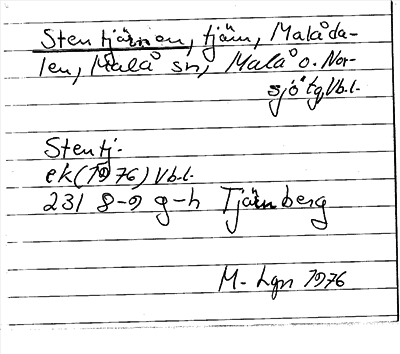 Stentjärnen, tjärn, Malåda-
len, Malå sn, Malå o. Nor-
sjö tg Vb.l.
Stentj.
ek (1976) Vb.l.
231 8-9 g-h Tjärnberg
M. Lgn 1976